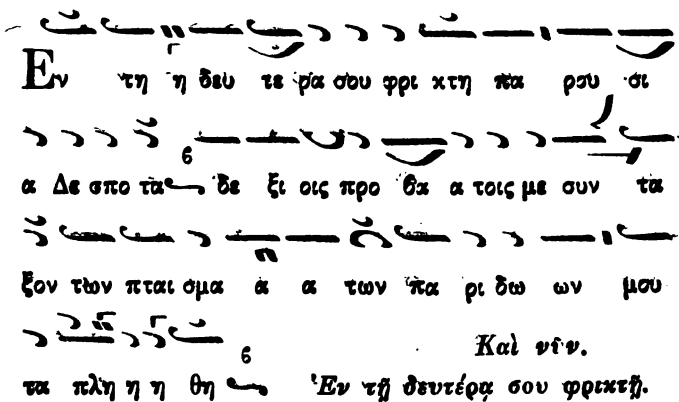 Εν τη η δευ τε ρα σου φρι κτη πα ρου σι
α Δε σπο τα δε ξι οις προ βα α τοις με συν τα
ξον των πται σμα α α των πα ρι δω ων μου
τα πλη η η θη
Καὶ νῦν.
Ἐν τῇ δευτέρᾳ σου φρικτῇ.